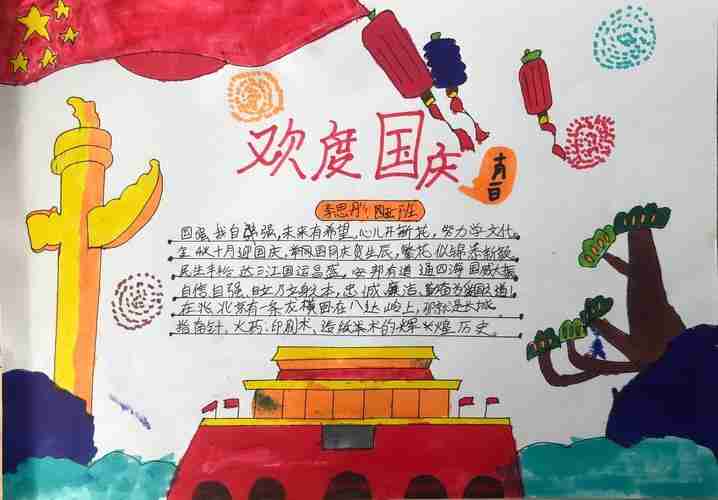 欢度国庆
十月一日
李思彤 四五班
国强我自强,未来有希望,心儿开新花,努力学文化
金秋十月迎国庆,举国同月庆生辰,繁花似锦
民生 达三江国运昌盛,安邦有道通四海国威大振
自信自强,自立为本,忠诚,廉洁,勤奋为
在北,北京有一条龙横田在八达岭上,那就是长城
指南针,火药,印刷术,造纸术的辉煌历史。